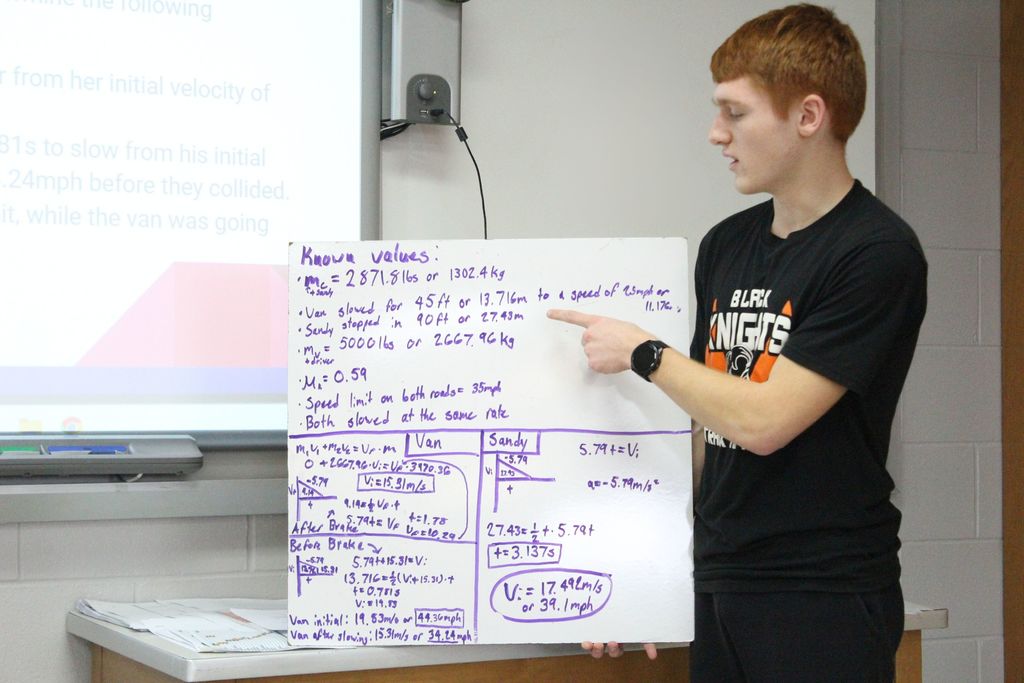 ine the following
r from her initial velocity of
81s to slow from his initial
.24mph before they collided.
it, while the van was going
Known values:
· mc = 2871.8 lbs or 1302.4 kg
+ Sandy
· Van slowed for 45 ft or 13.716m to a speed of 25mph or
11.176
· Sandy stopped in 90 ft or 27.43m
· mv = 5000 lbs or 2667.96 kg
+ driver
= 0.59
· Speed limit on both roads = 35mph
· Both slowed at the same rate
Van
m₁v₁+m₂v₂ = VF · m
0 + 2667.96·Vi = VF · 3970.36
Vi = 15.31 m/s
-5.79
9.14
t
9.14 = ½ VF · t
5.79t = VF
t = 1.78
VF = 10.29
After Brake
Before Brake
-5.79
13.716
15.31
t
5.79t + 15.31 = Vi
13.716 = ½(Vi + 15.31) · t
t = 0.781s
Vi = 19.83
Van initial: 19.83m/s or 44.36mph
Van after slowing: 15.31m/s or 34.24mph
Sandy
Vi
-5.79
27.43
t
5.79t = Vi
a = -5.79m/s²
27.43 = ½ t · 5.79t
t = 3.137s
Vi = 17.492m/s
or 39.1mph
BLACK
KNIGHTS